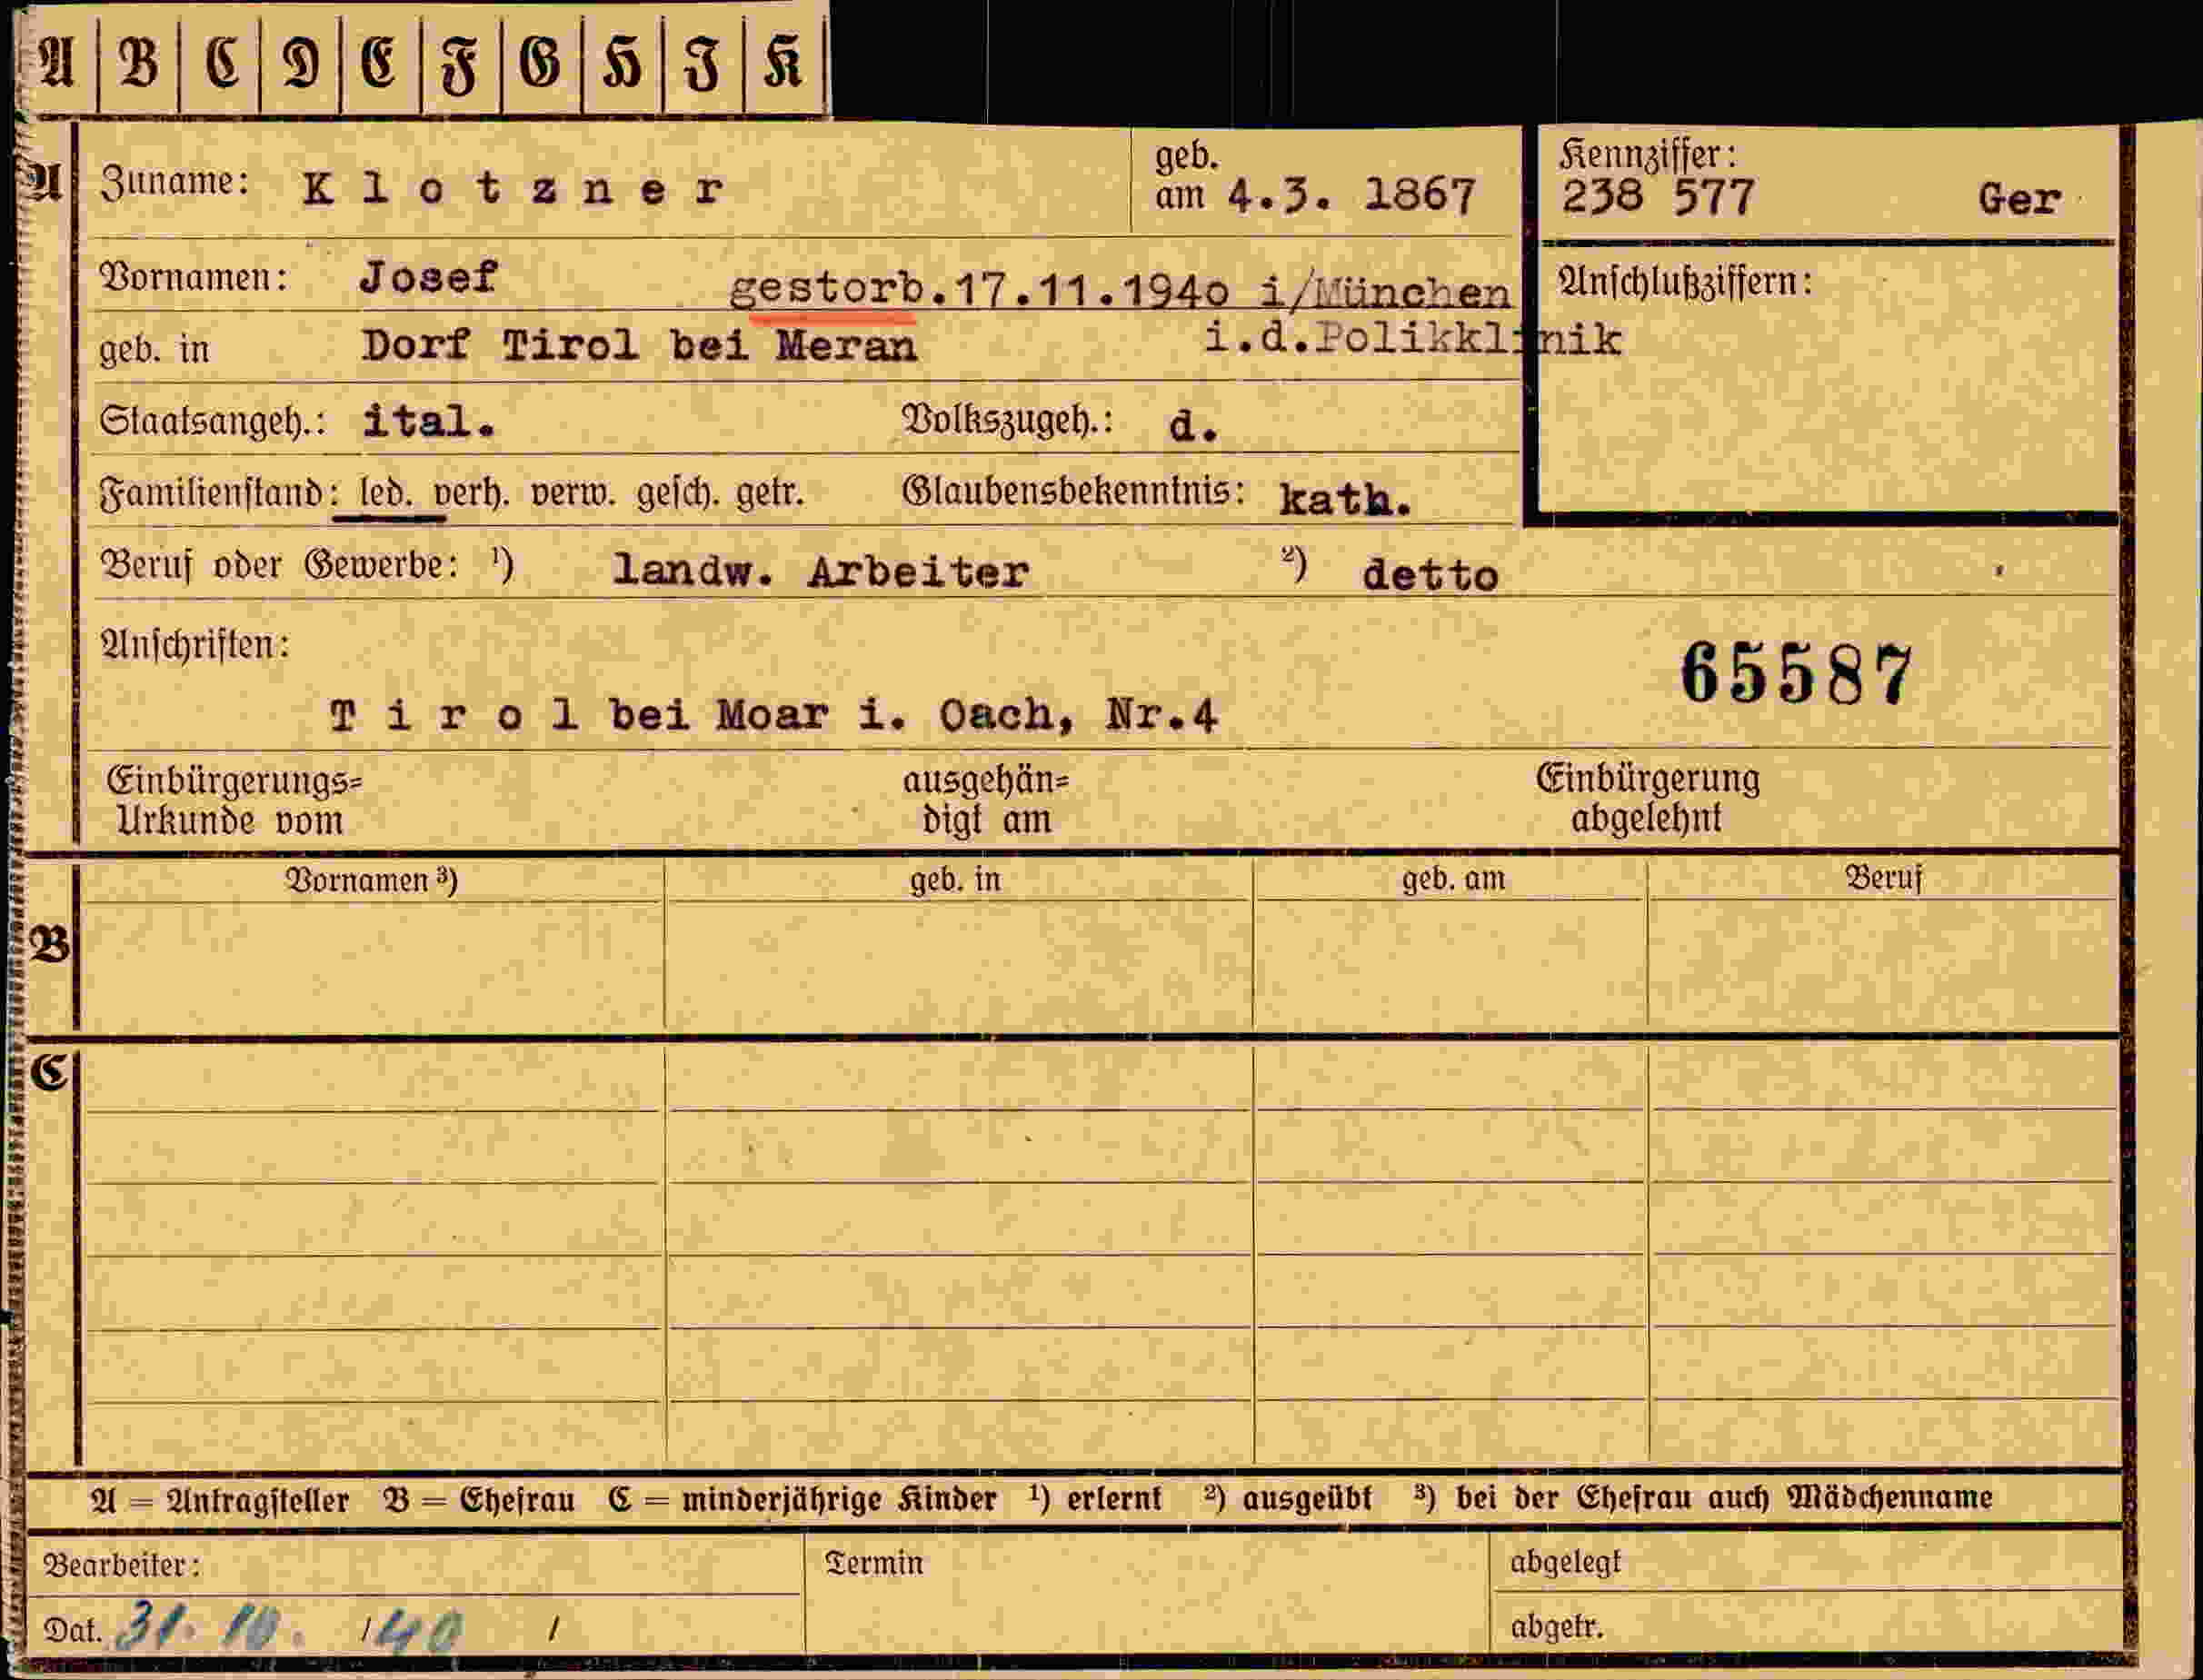 A B C D E F G H I K
A Zuname: Klotzner geb. am 4.3. 1867 Kennziffer: 238 577 Ger
Vornamen: Josef gestorb.17.11.1940 i/München Anschlußziffern:
geb. in Dorf Tirol bei Meran i.d.Polikklinik
Staatsangeh.: ital. Volkszugeh.: d.
Familienstand: led. verh. verw. gesch. getr. Glaubensbekenntnis: kath.
Beruf oder Gewerbe: ¹) landw. Arbeiter ²) detto
Anschriften:
65587
Tirol bei Moar i. Oach, Nr.4
Einbürgerungs= ausgehän= Einbürgerung
Urkunde vom digt am abgelehnt
Vornamen ³) geb. in geb. am Beruf
B
C
A = Antragsteller B = Ehefrau C = minderjährige Kinder ¹) erlernt ²) ausgeübt ³) bei der Ehefrau auch Mädchenname
Bearbeiter: Termin abgelegt
Dat. 31. 10. /40 / abgetr.